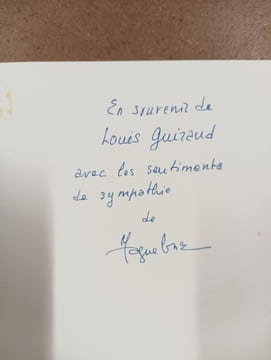 En souvenir de
Louis Guiraud
avec les sentiments
de sympathie
de